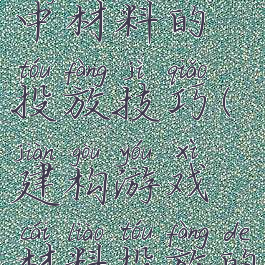 中材料的
tóu fàng jì qiǎo
投放技巧(
jiàn gòu yóu xì
建构游戏
cái liào tóu fàng de
材料投放的